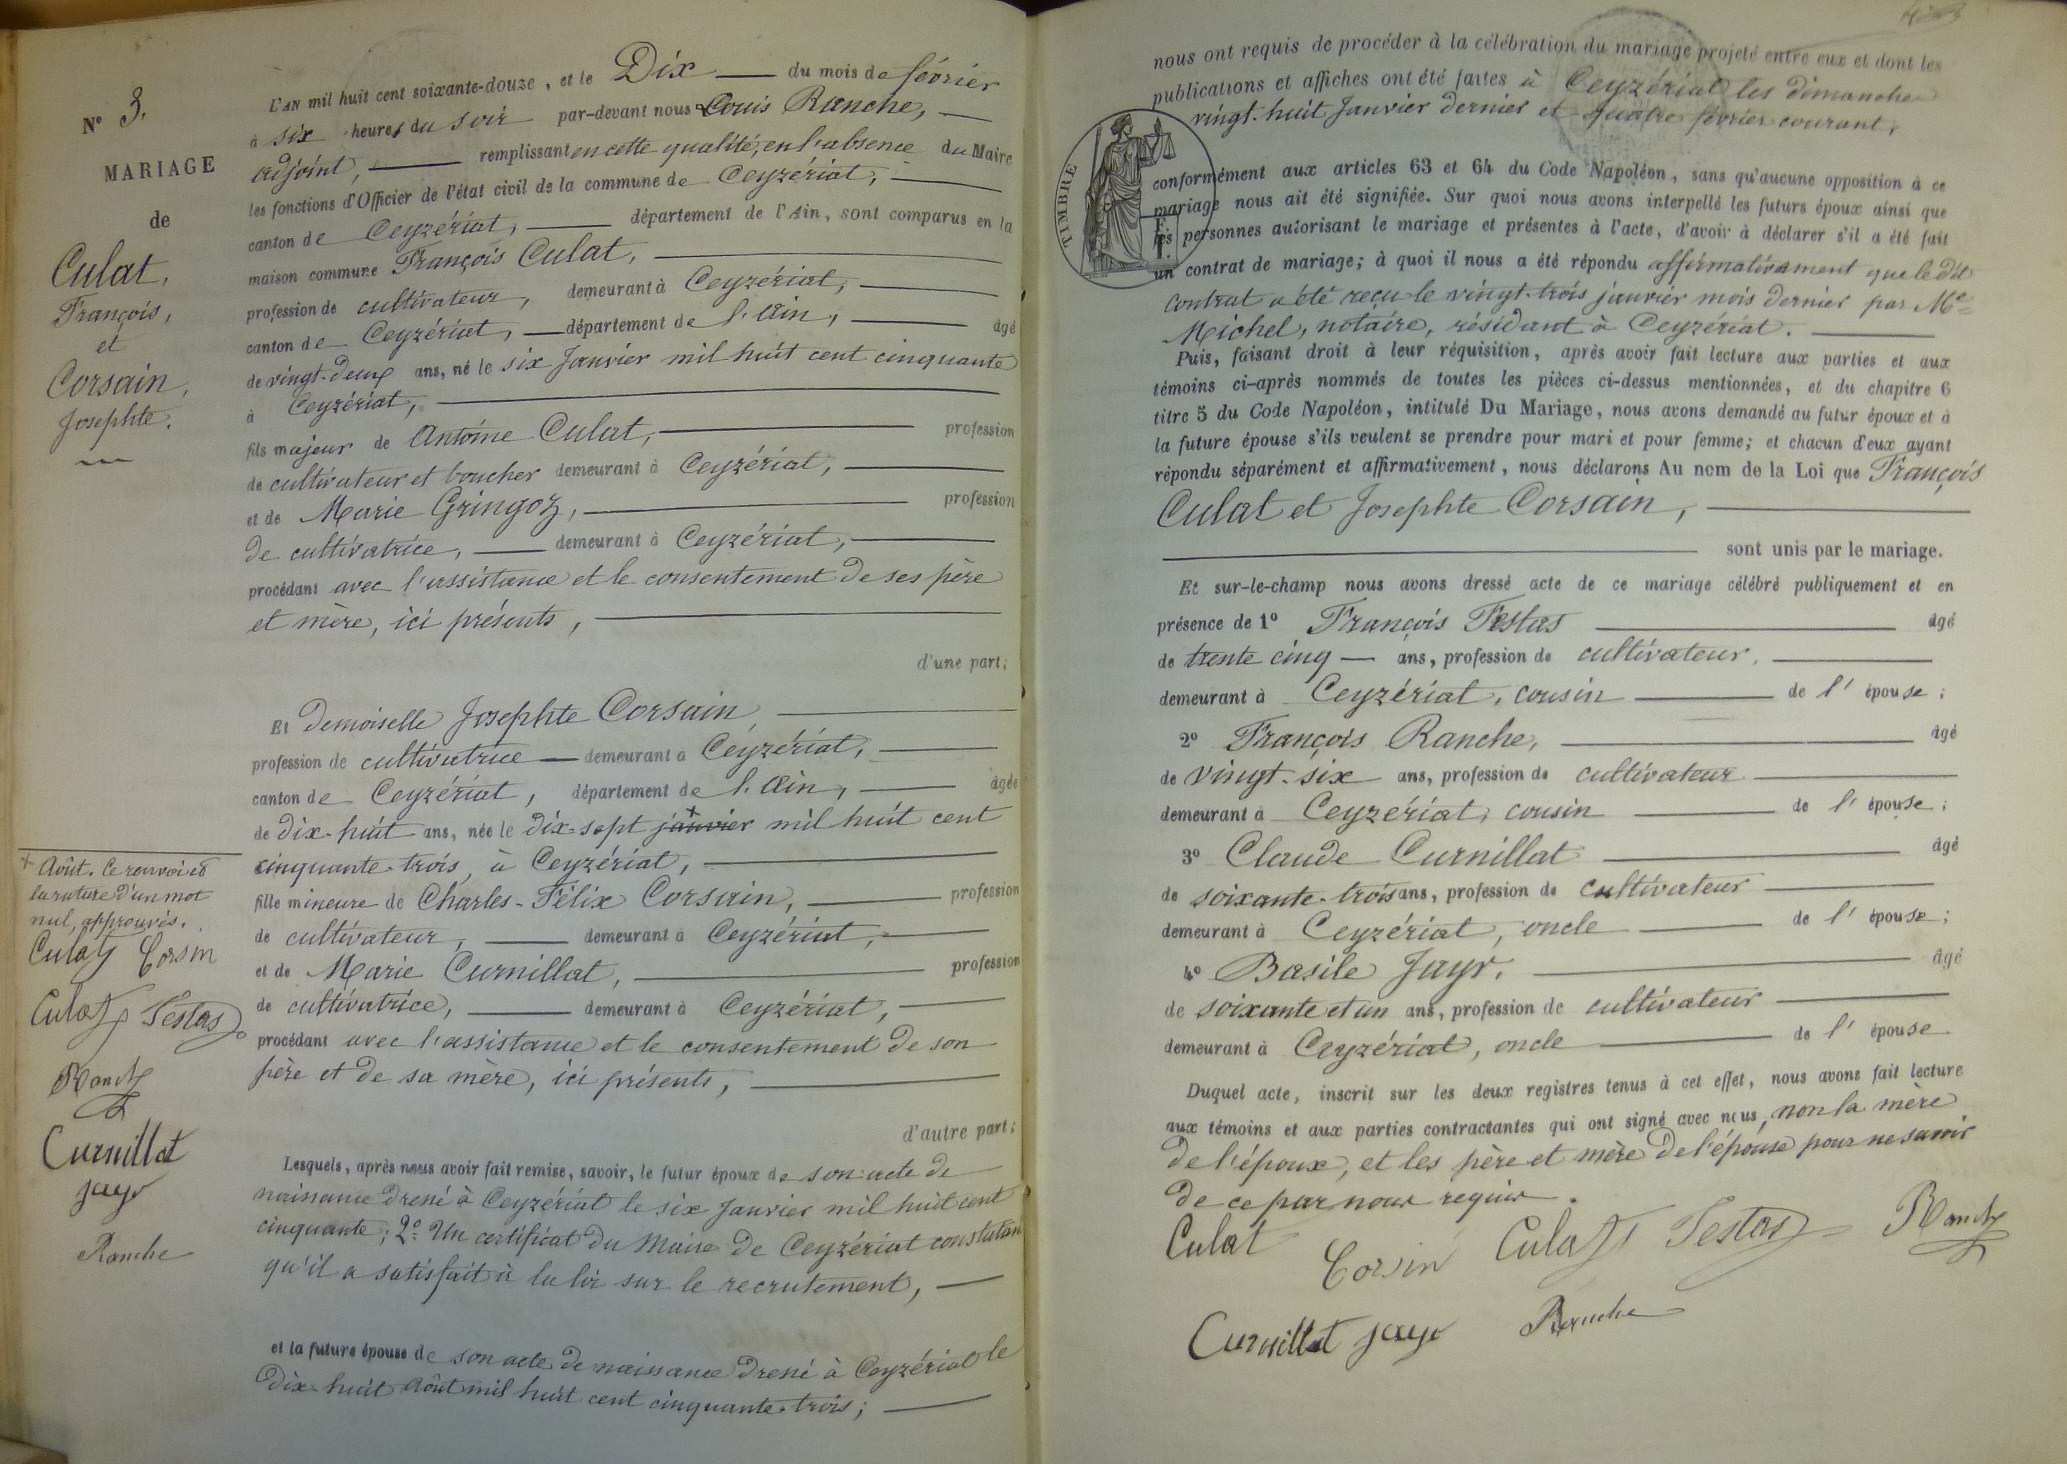 N° 3.
MARIAGE
de
Culat,
François,
et
Corsain,
Josephte.
+ Août. Ce renvoi et
la rature d'un mot
nul, approuvés.
Culat Corsin
Culat Testas
Ranche
Curnillat
jayr
Ranche
L'AN mil huit cent soixante-douze, et le Dix du mois de février
à six heures du soir par-devant nous Louis Ranche,
adjoint, remplissant en cette qualité, en l'absence du Maire
les fonctions d'Officier de l'état civil de la commune de Ceyzériat,
canton de Ceyzériat, département de l'Ain, sont comparus en la
maison commune François Culat,
profession de cultivateur, demeurant à Ceyzériat,
canton de Ceyzériat, département de l'Ain, âgé
de vingt-deux ans, né le six Janvier mil huit cent cinquante
à Ceyzériat,
fils majeur de Antoine Culat, profession
de cultivateur et boucher demeurant à Ceyzériat,
et de Marie Gringoz, profession
de cultivatrice, demeurant à Ceyzériat,
procédant avec l'assistance et le consentement de ses père
et mère, ici présents,
d'une part;
Et demoiselle Josephte Corsain
profession de cultivatrice demeurant à Ceyzériat,
canton de Ceyzériat, département de l'Ain, âgée
de dix-huit ans, née le dix-sept janvier + mil huit cent
cinquante-trois, à Ceyzériat,
fille mineure de Charles-Félix Corsain, profession
de cultivateur, demeurant à Ceyzériat,
et de Marie Curnillat, profession
de cultivatrice, demeurant à Ceyzériat,
procédant avec l'assistance et le consentement de son
père et de sa mère, ici présents,
d'autre part;
Lesquels, après nous avoir fait remise, savoir, le futur époux de son acte de
naissance dressé à Ceyzériat le six Janvier mil huit cent
cinquante; 2° Un certificat du Maire de Ceyzériat constatant
qu'il a satisfait à la loi sur le recrutement,
et la future épouse de son acte de naissance dressé à Ceyzériat le
dix-huit Août mil huit cent cinquante-trois;
nous ont requis de procéder à la célébration du mariage projeté entre eux et dont les
publications et affiches ont été faites à Ceyzériat les dimanches
vingt-huit Janvier dernier et quatre février courant,
TIMBRE
conformément aux articles 63 et 64 du Code Napoléon, sans qu'aucune opposition à ce
mariage nous ait été signifiée. Sur quoi nous avons interpellé les futurs époux ainsi que
les personnes autorisant le mariage et présentes à l'acte, d'avoir à déclarer s'il a été fait
un contrat de mariage; à quoi il nous a été répondu affirmativement que le dit
contrat a été reçu le vingt-trois janvier mois dernier par Me
Michel, notaire, résidant à Ceyzériat.
Puis, faisant droit à leur réquisition, après avoir fait lecture aux parties et aux
témoins ci-après nommés de toutes les pièces ci-dessus mentionnées, et du chapitre 6
titre 5 du Code Napoléon, intitulé Du Mariage, nous avons demandé au futur époux et à
la future épouse s'ils veulent se prendre pour mari et pour femme; et chacun d'eux ayant
répondu séparément et affirmativement, nous déclarons Au nom de la Loi que François
Culat et Josephte Corsain,
sont unis par le mariage.
Et sur-le-champ nous avons dressé acte de ce mariage célébré publiquement et en
présence de 1° François Testas âgé
de trente cinq ans, profession de cultivateur,
demeurant à Ceyzériat, cousin de l'épouse;
2° François Ranche, âgé
de vingt-six ans, profession de cultivateur
demeurant à Ceyzériat, cousin de l'épouse;
3° Claude Curnillat âgé
de soixante-trois ans, profession de cultivateur
demeurant à Ceyzériat, oncle de l'épouse;
4° Basile Jayr, âgé
de soixante et un ans, profession de cultivateur
demeurant à Ceyzériat, oncle de l'épouse
Duquel acte, inscrit sur les deux registres tenus à cet effet, nous avons fait lecture
aux témoins et aux parties contractantes qui ont signé avec nous, non la mère
de l'époux, et les père et mère de l'épouse pour ne savoir
de ce par nous requis.
Culat Corsin Culat Testas Ranche
Curnillat jayr Ranche